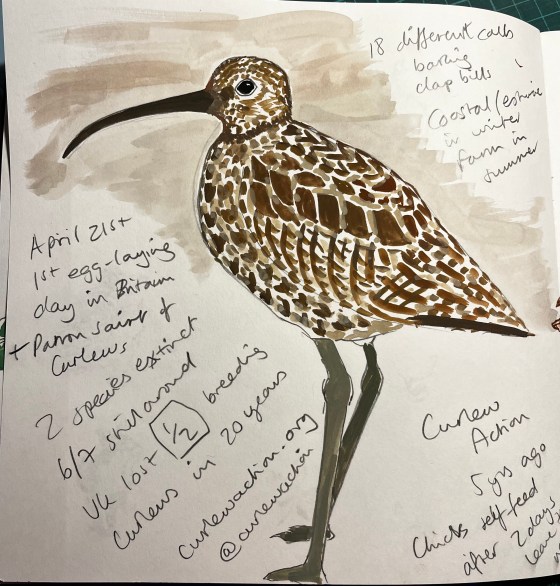 18 different calls
barking
clap bills
Coastal/estuarine
in winter
farm in
summer
April 21st
1st egg-laying
day in Britain
+ Patron saint of
Curlews
2 species extinct
6/7 still around
UK lost 1/2 breeding
Curlews in 20 years
curlewaction.org
@curlewaction
Curlew
Action
5 yrs ago
Chicks self feed
after 2 days
leave